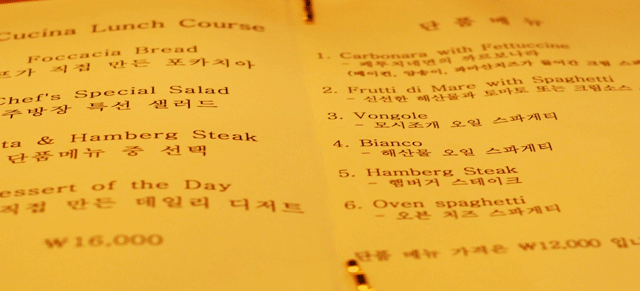 Cucina Lunch Course
Foccacia Bread
직접 만든 포카치아
Chef's Special Salad
주방장 특선 샐러드
& Hamberg Steak
단품메뉴 중 선택
Dessert of the Day
직접 만든 데일리 디저트
₩16,000
단품 메뉴
1. Carbonara with Fettuccine
- 페투치네면의 까르보나라
(베이컨, 양송이, 파마산치즈가 들어간 크림
2. Frutti di Mare with Spaghetti
- 신선한 해산물과 토마토 또는 크림소스
3. Vongole
- 모시조개 오일 스파게티
4. Bianco
- 해산물 오일 스파게티
5. Hamberg Steak
- 햄버거 스테이크
6. Oven spaghetti
- 오븐 치즈 스파게티
단품 메뉴 가격은 ₩12,000